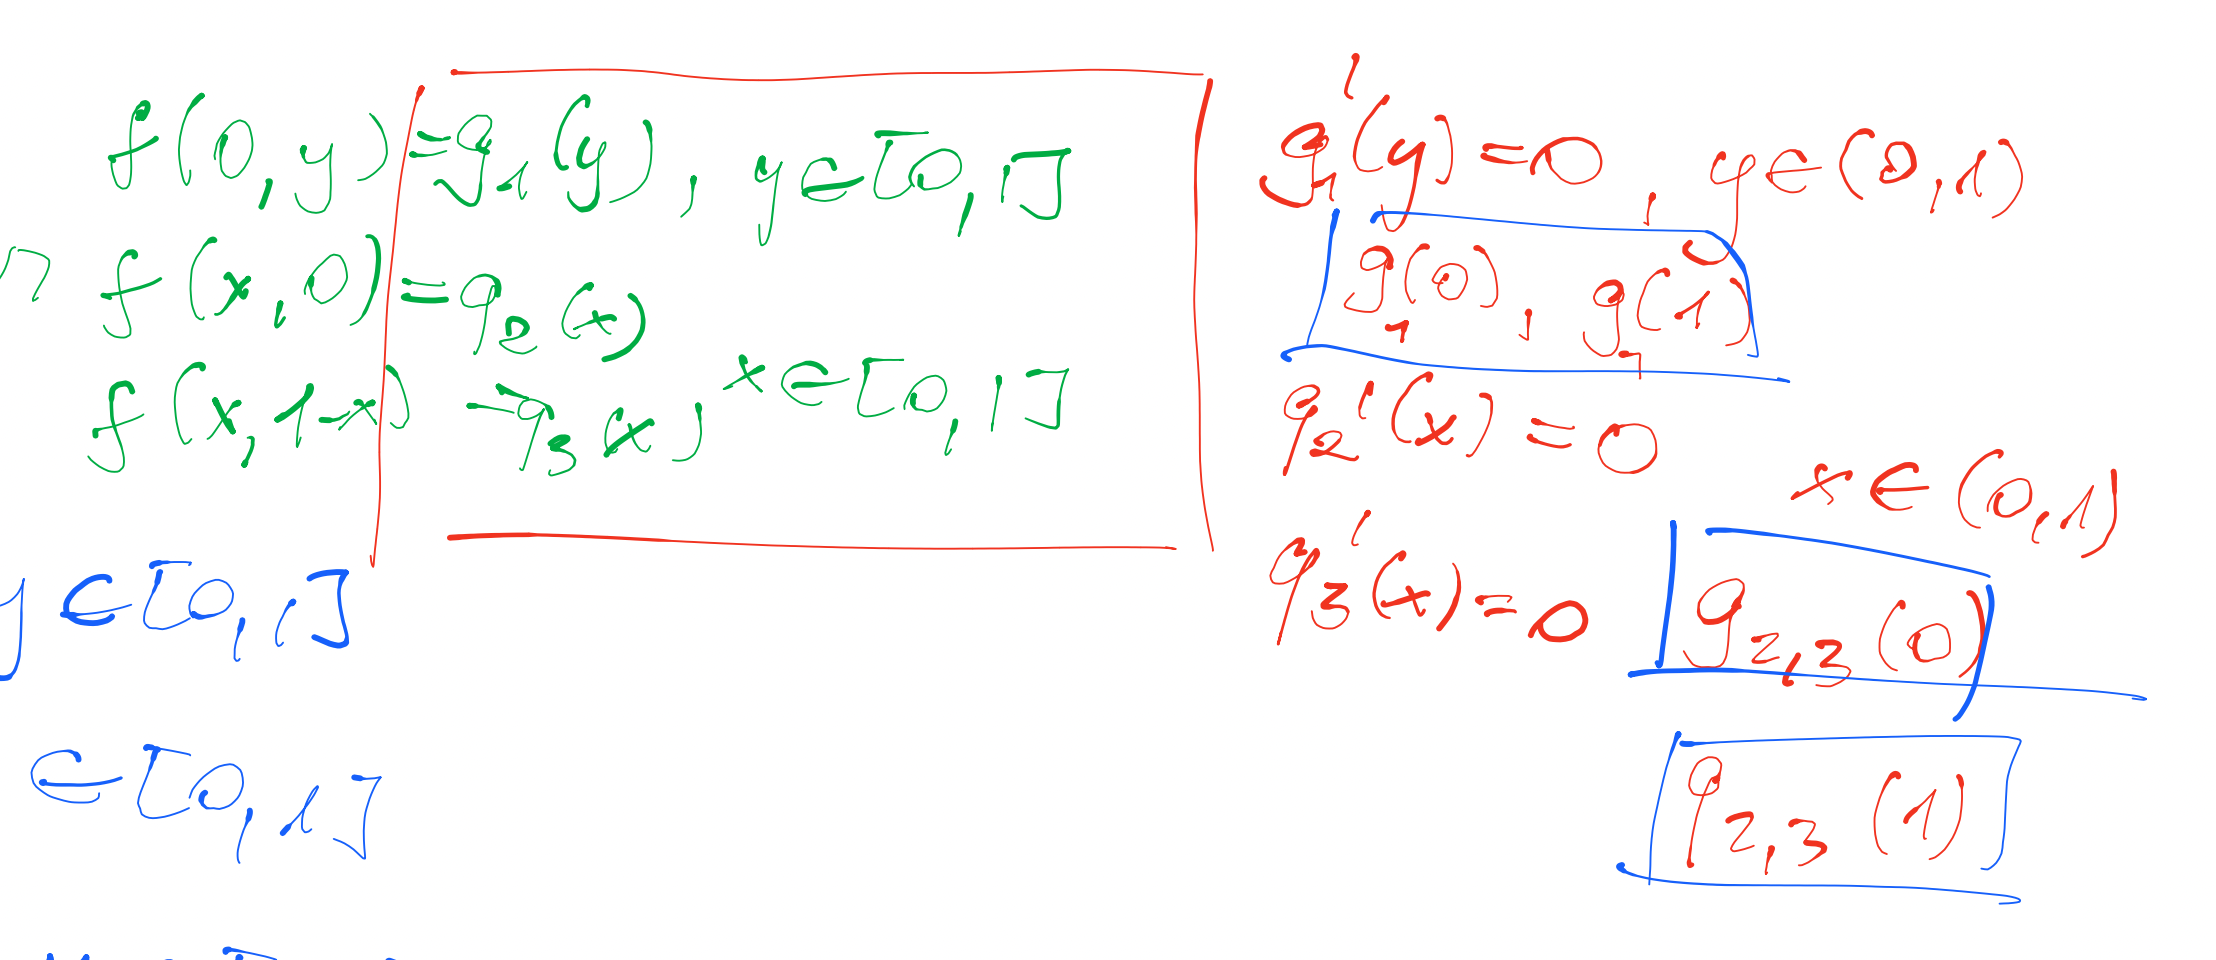 f(0,y) = g₁(y), y∈[0,1]
f(x,0) = g₂(x)
f(x,1-x) = g₃(x), x∈[0,1]
y∈[0,1]
∈[0,1]
g₁'(y)=0, y∈(0,1)
g₁(0), g₁(1)
g₂'(x)=0
x∈(0,1)
g₃'(x)=0
g₂,₃(0)
g₂,₃(1)